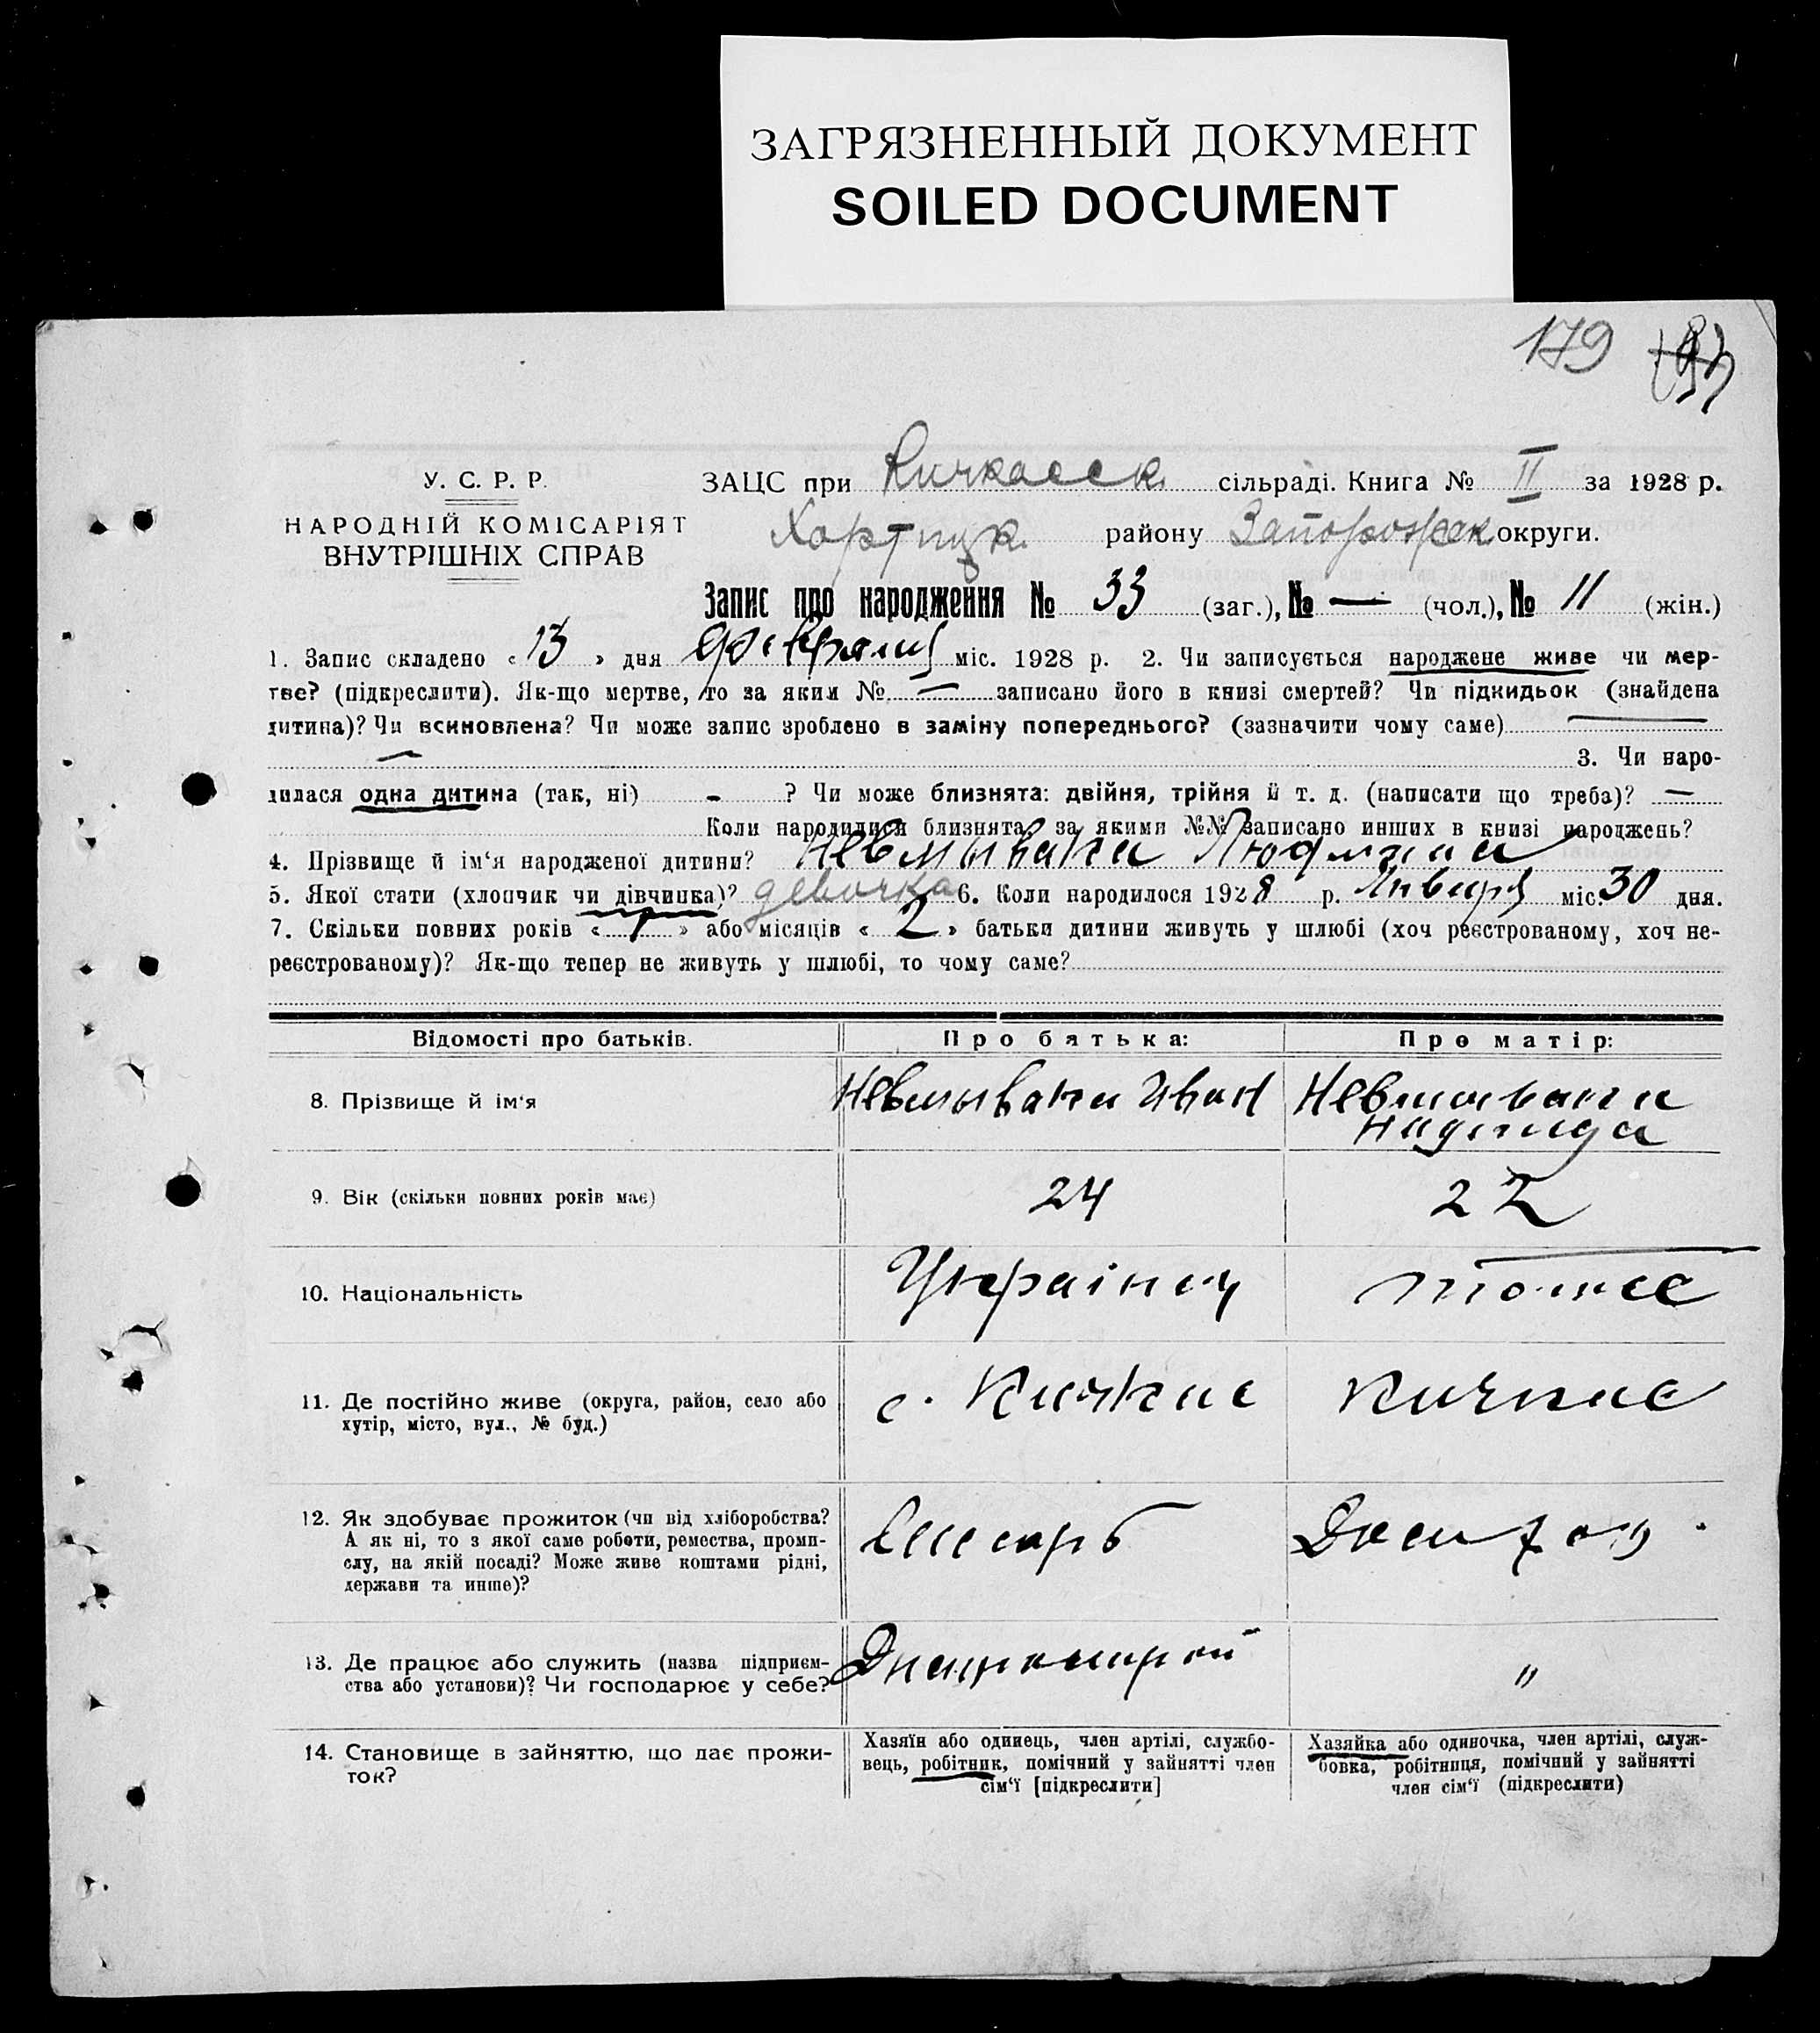 ЗАГРЯЗНЕННЫЙ ДОКУМЕНТ
SOILED DOCUMENT
179
У. С. Р. Р.
НАРОДНІЙ КОМІСАРІЯТ
ВНУТРІШНІХ СПРАВ
ЗАЦС при Кичкасск. сільраді. Книга № II за 1928 р.
Хортицк. району Запорожск округи.
Запис про народження № 33 (заг.), № — (чол.), № 11 (жін.)
1. Запис складено « 13 » дня февраля міс. 1928 р. 2. Чи записується народжене живе чи мер-
тве? (підкреслити). Як-що мертве, то за яким № — записано його в книзі смертей? Чи підкидьок (знайдена
дитина)? Чи всиновлена? Чи може запис зроблено в заміну попереднього? (зазначити чому саме) —
— 3. Чи наро-
дилася одна дитина (так, ні) - ? Чи може близнята: двійня, трійня й т. д. (написати що треба)? —
Коли народилися близнята, за якими №№ записано инших в книзі народжень?
4. Прізвище й ім‘я народженої дитини? Невмывака Людмила
5. Якої статі (хлопчик чи дівчинка)? девочка 6. Коли народилося 1928 р. Января міс. 30 дня.
7. Скільки повних років « 1 » або місяців « 2 » батьки дитини живуть у шлюбі (хоч реєстрованому, хоч не-
реєстрованому)? Як-що тепер не живуть у шлюбі, то чому саме?
Відомості про батьків. Про батька: Про матір:
8. Прізвище й ім‘я Невмывака Иван Невмывака
Надежда
9. Вік (скільки повних років має) 24 22
10. Національність Украінец тоже
11. Де постійно живе (округа, район, село або
хутір, місто, вул., № буд.) с. Кичкас Кичкас
12. Як здобуває прожиток (чи від хліборобства?
А як ні, то з якої саме роботи, ремества, проми-
слу, на якій посаді? Може живе коштами рідні,
держави та инше)? Слесарь Домохоз.
13. Де працює або служить (назва підприєм-
ства або установи)? Чи господарює у себе? Днепрострой "
14. Становище в зайняттю, що дає прожи-
ток?
Хазяїн або одинець, член артілі, службо-
вець, робітник, помічний у зайнятті член
сім‘ї [підкреслити]
Хазяйка або одиночка, член артілі, служ-
бовка, робітниця, помічний у зайнятті
член сім‘ї (підкреслити)